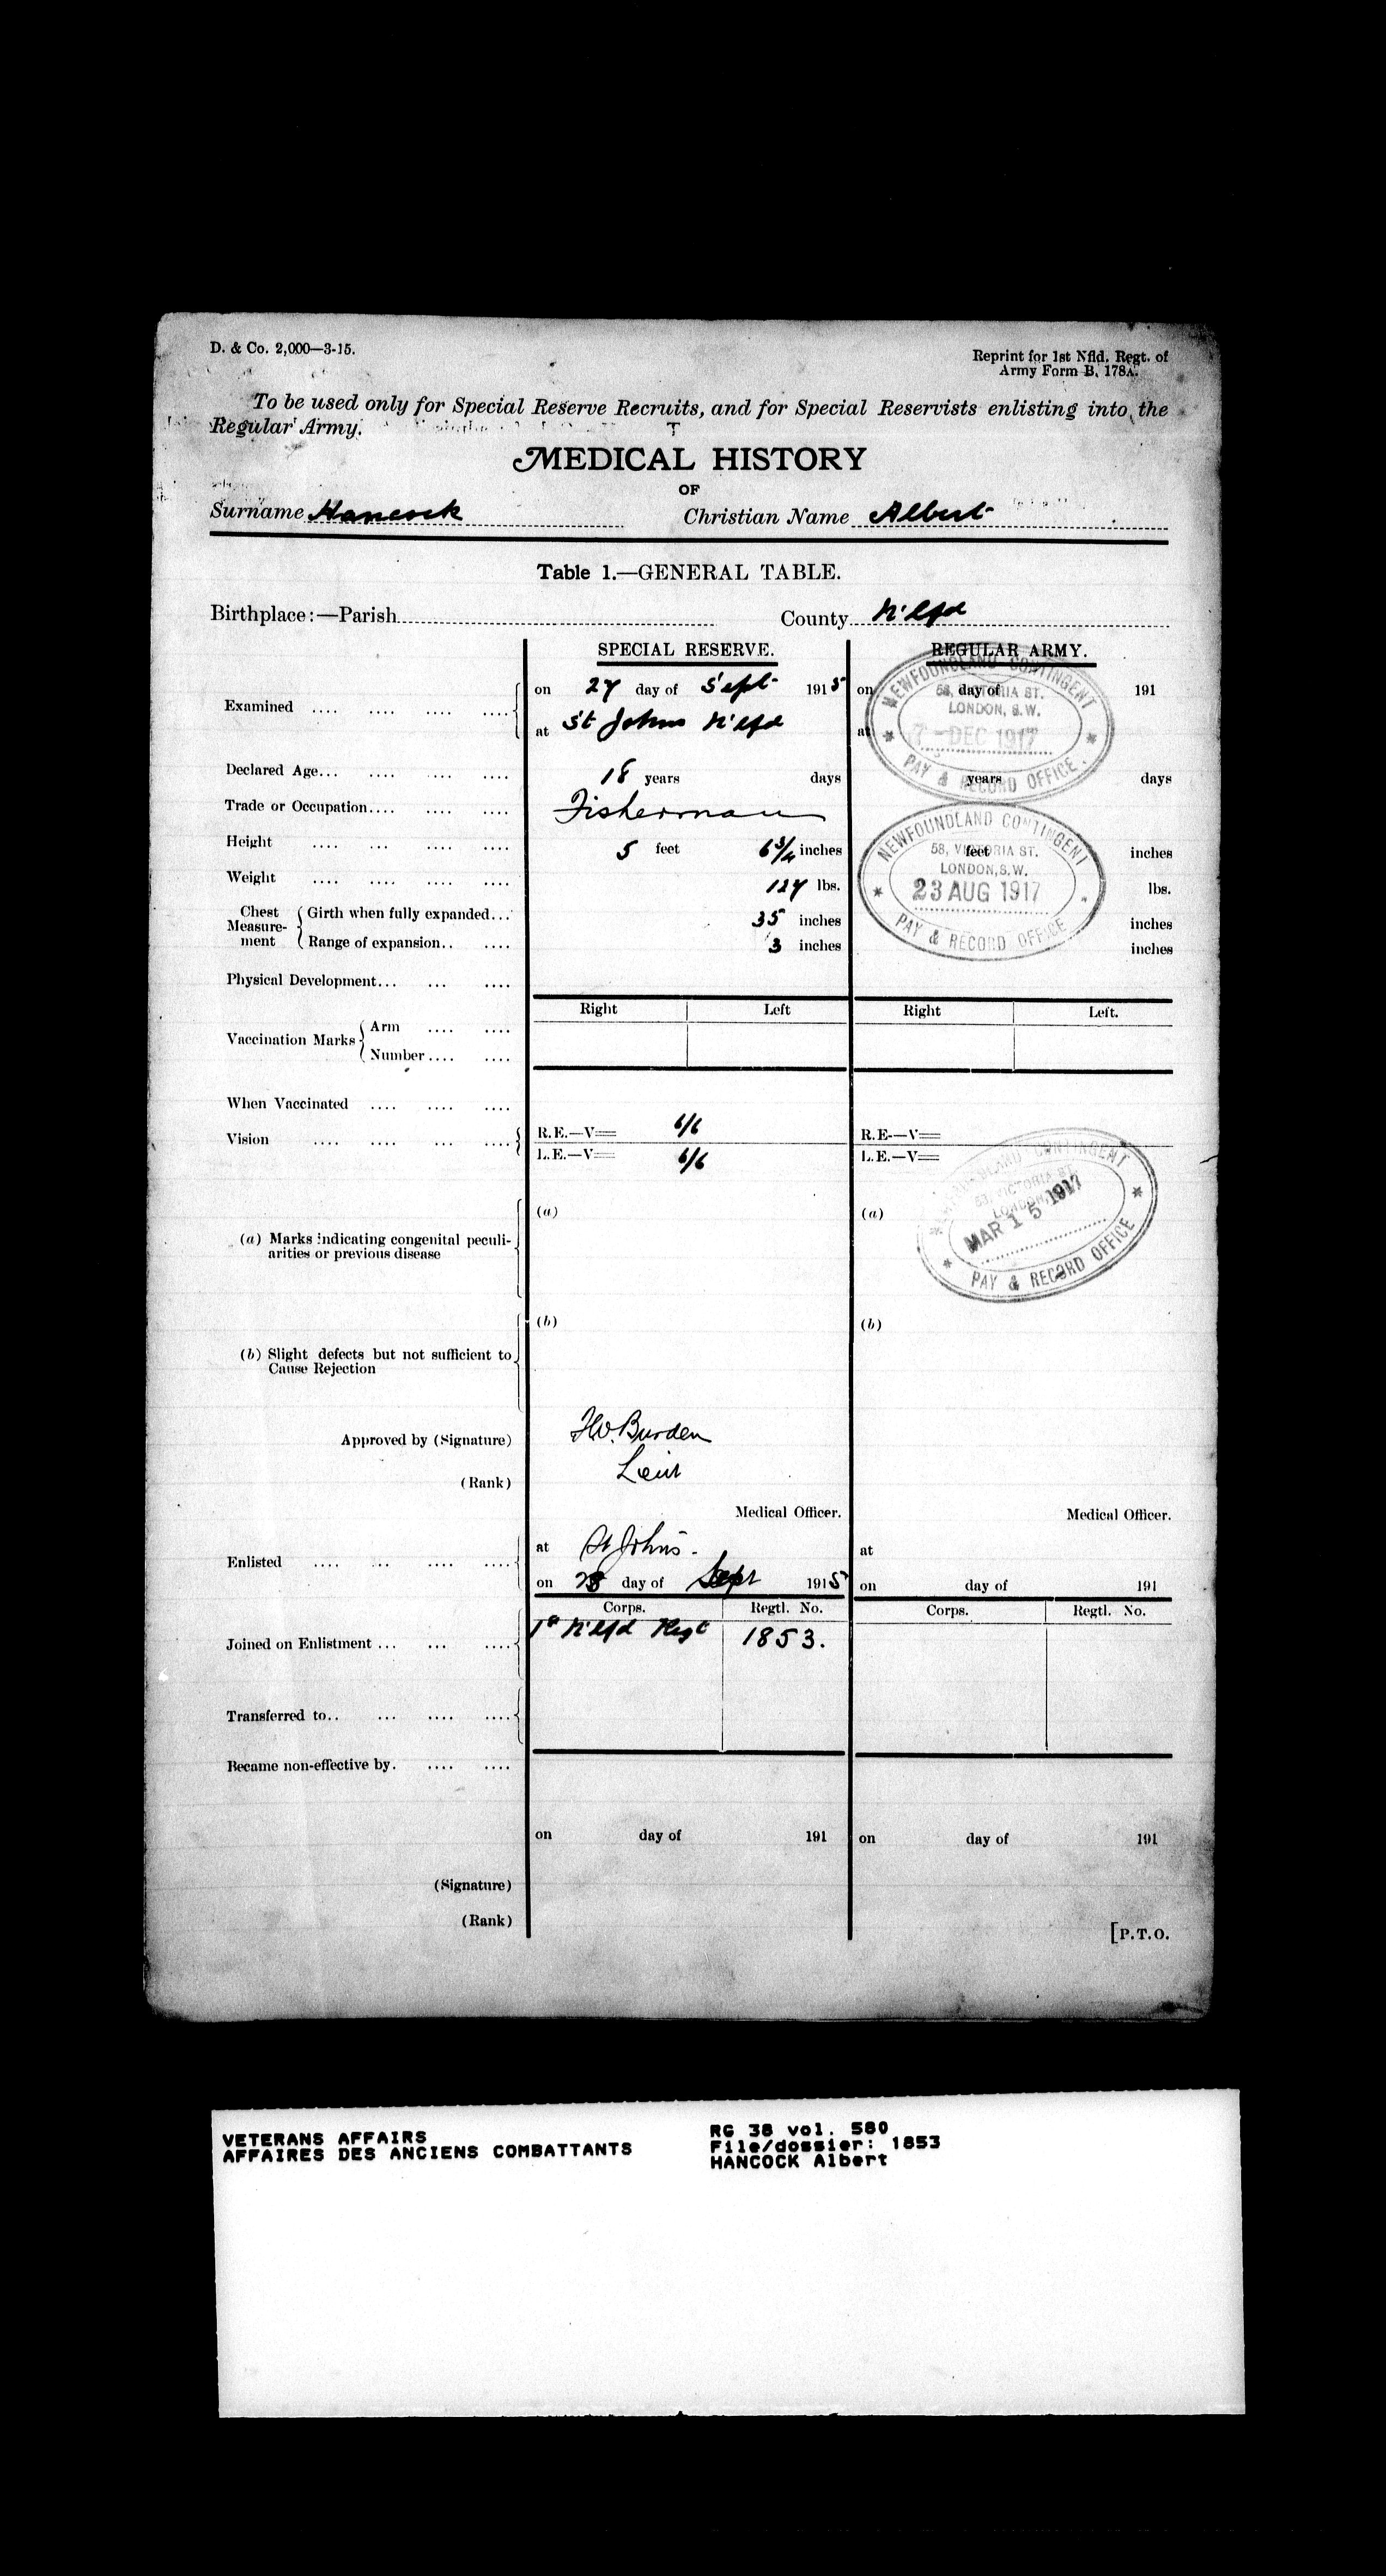 D. & Co. 2,000—3-15.
Reprint for 1st Nfld. Regt. of
Army Form B. 178A.
To be used only for Special Reserve Recruits, and for Special Reservists enlisting into the
Regular Army.
MEDICAL HISTORY
OF
Surname Hancock Christian Name Albert
Table 1.—GENERAL TABLE.
Birthplace:—Parish County N'fld
SPECIAL RESERVE. REGULAR ARMY.
Examined .... .... .... ....
on 27 day of Sept 1915 on day of 191
at St Johns N'fld at
NEWFOUNDLAND CONTINGENT
58, VICTORIA ST.
LONDON, S.W.
7-DEC 1917
PAY & RECORD OFFICE.
Declared Age... .... .... .... 18 years days years days
Trade or Occupation.... .... .... Fisherman
Height .... .... .... .... 5 feet 6 3/4 inches feet inches
Weight .... .... .... .... 127 lbs. lbs.
NEWFOUNDLAND CONTINGENT
58, VICTORIA ST.
LONDON, S.W.
23 AUG 1917
PAY & RECORD OFFICE
Chest Measure-ment
Girth when fully expanded... 35 inches inches
Range of expansion.. .... 3 inches inches
Physical Development... ... ....
Right Left Right Left.
Vaccination Marks
Arm .... ....
Number.... ....
When Vaccinated .... .... ....
Vision .... .... ... ....
R.E.—V= 6/6 R.E.—V=
L.E.—V= 6/6 L.E.—V=
NEWFOUNDLAND CONTINGENT
58, VICTORIA ST.
LONDON, S.W.
MAR 15 1917
PAY & RECORD OFFICE
(a) Marks indicating congenital peculi-
arities or previous disease
(a) (a)
(b) (b)
(b) Slight defects but not sufficient to
Cause Rejection
Approved by (Signature) Burden
(Rank) Lieut
Medical Officer. Medical Officer.
Enlisted .... ... .... ....
at St Johns. at
on 28 day of Sept 1915 on day of 191
Corps. Regtl. No. Corps. Regtl. No.
Joined on Enlistment ... ... .... 1st N'fld Regt 1853.
Transferred to.. ... .... ....
Became non-effective by. .... ....
on day of 191 on day of 191
(Signature)
(Rank)
[P.T.O.
VETERANS AFFAIRS
AFFAIRES DES ANCIENS COMBATTANTS
RG 38 vol. 580
File/dossier: 1853
HANCOCK Albert